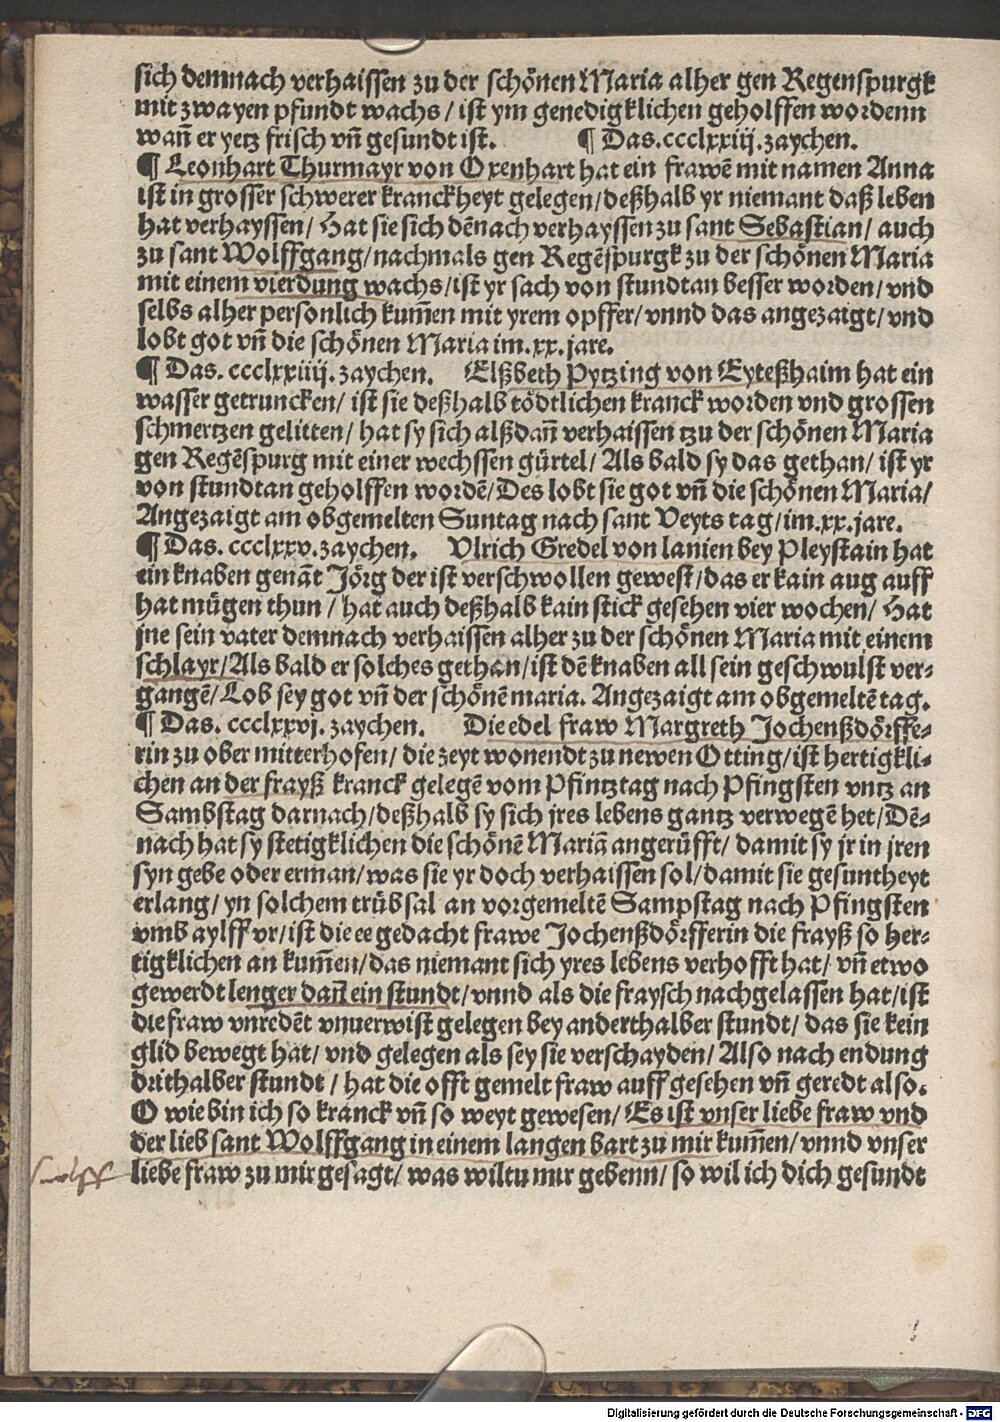 sich demnach verhaissen zu der schönen Maria alher gen Regenspurgk
mit zwayen pfundt wachs / ist ym genedigklichen geholffen wordenn
wañ er yetz frisch vñ gesundt ist. ¶ Das.cccclxxiij.zaychen.
¶ Leonhart Thurmayr von Oxenhart hat ein frawē mit namen Anna
ist in grosser schwerer kranckheyt gelegen/deßhalb yr niemant daß leben
hat verhayssen/ Hat sie sich dēnach verhayssen zu sant Sebastian/ auch
zu sant Wolffgang/nachmals gen Regēspurgk zu der schönen Maria
mit einem vierdung wachs/ist yr sach von stundtan besser worden/vnd
selbs alher personlich kum̃en mit yrem opffer/vnnd das angezaigt/vnd
lobt got vñ die schönen Maria im.xx.jare.
¶ Das. cccclxxiiij.zaychen. Elßbeth Pytzing von Eyteßhaim hat ein
wasser getruncken/ ist sie deßhalb tödtlichen kranck worden vnd grossen
schmertzen gelitten/ hat sy sich alßdañ verhaissen tzu der schönen Maria
gen Regēspurg mit einer wechssen gürtel/ Als bald sy das gethan/ ist yr
von stundtan geholffen wordē/Des lobt sie got vñ die schönen Maria/
Angezaigt am obgemelten Suntag nach sant Veyts tag/im.xx.jare.
¶ Das. cccclxxv.zaychen. Vlrich Gredel von lanien bey Pleystain hat
ein knaben genāt Jörg der ist verschwollen gewest/das er kain aug auff
hat mügen thun / hat auch deßhalb kain stick gesehen vier wochen/ Hat
jne sein vater demnach verhaissen alher zu der schönen Maria mit einem
schlayr/Als bald er solches gethan/ist dē knaben all sein geschwulst ver-
gangē/Lob sey got vñ der schönē maria. Angezaigt am obgemeltē tag.
¶ Das. cccclxxvj. zaychen. Die edel fraw Margreth Jochenßdörffe-
rin zu ober mitterhofen/ die zeyt wonendt zu newen Otting/ist hertigkli-
chen an der frayß kranck gelegē vom Pfintztag nach Pfingsten vntz an
Sambstag darnach/deßhalb sy sich jres lebens gantz verwegē het/Dē-
nach hat sy stetigklichen die schönē Mariā angerüfft/ damit sy jr in jren
syn gebe oder erman/was sie yr doch verhaissen sol/damit sie gesuntheyt
erlang/yn solchem trübsal an vorgemeltē Sampstag nach Pfingsten
vmb aylff vr/ist die ee gedacht frawe Jochenßdörfferin die frayß so her-
tigklichen an kum̃en/das niemant sich yres lebens verhofft hat/ vñ etwo
gewerdt lenger dañ ein stundt/vnnd als die fraysch nachgelassen hat/ist
die fraw vnredēt vnuerwist gelegen bey anderthalber stundt/ das sie kein
glid bewegt hat/ vnd gelegen als sey sie verschayden/ Also nach endung
drithalber stundt / hat die offt gemelt fraw auff gesehen vñ geredt also.
O wie bin ich so kranck vñ so weyt gewesen/ Es ist vnser liebe fraw vnd
der lieb sant Wolffgang in einem langen bart zu mir kum̃en/ vnnd vnser
liebe fraw zu mir gesagt/ was wiltu mir gebenn/ so wil ich dich gesundt
Digitalisierung gefördert durch die Deutsche Forschungsgemeinschaft - DFG